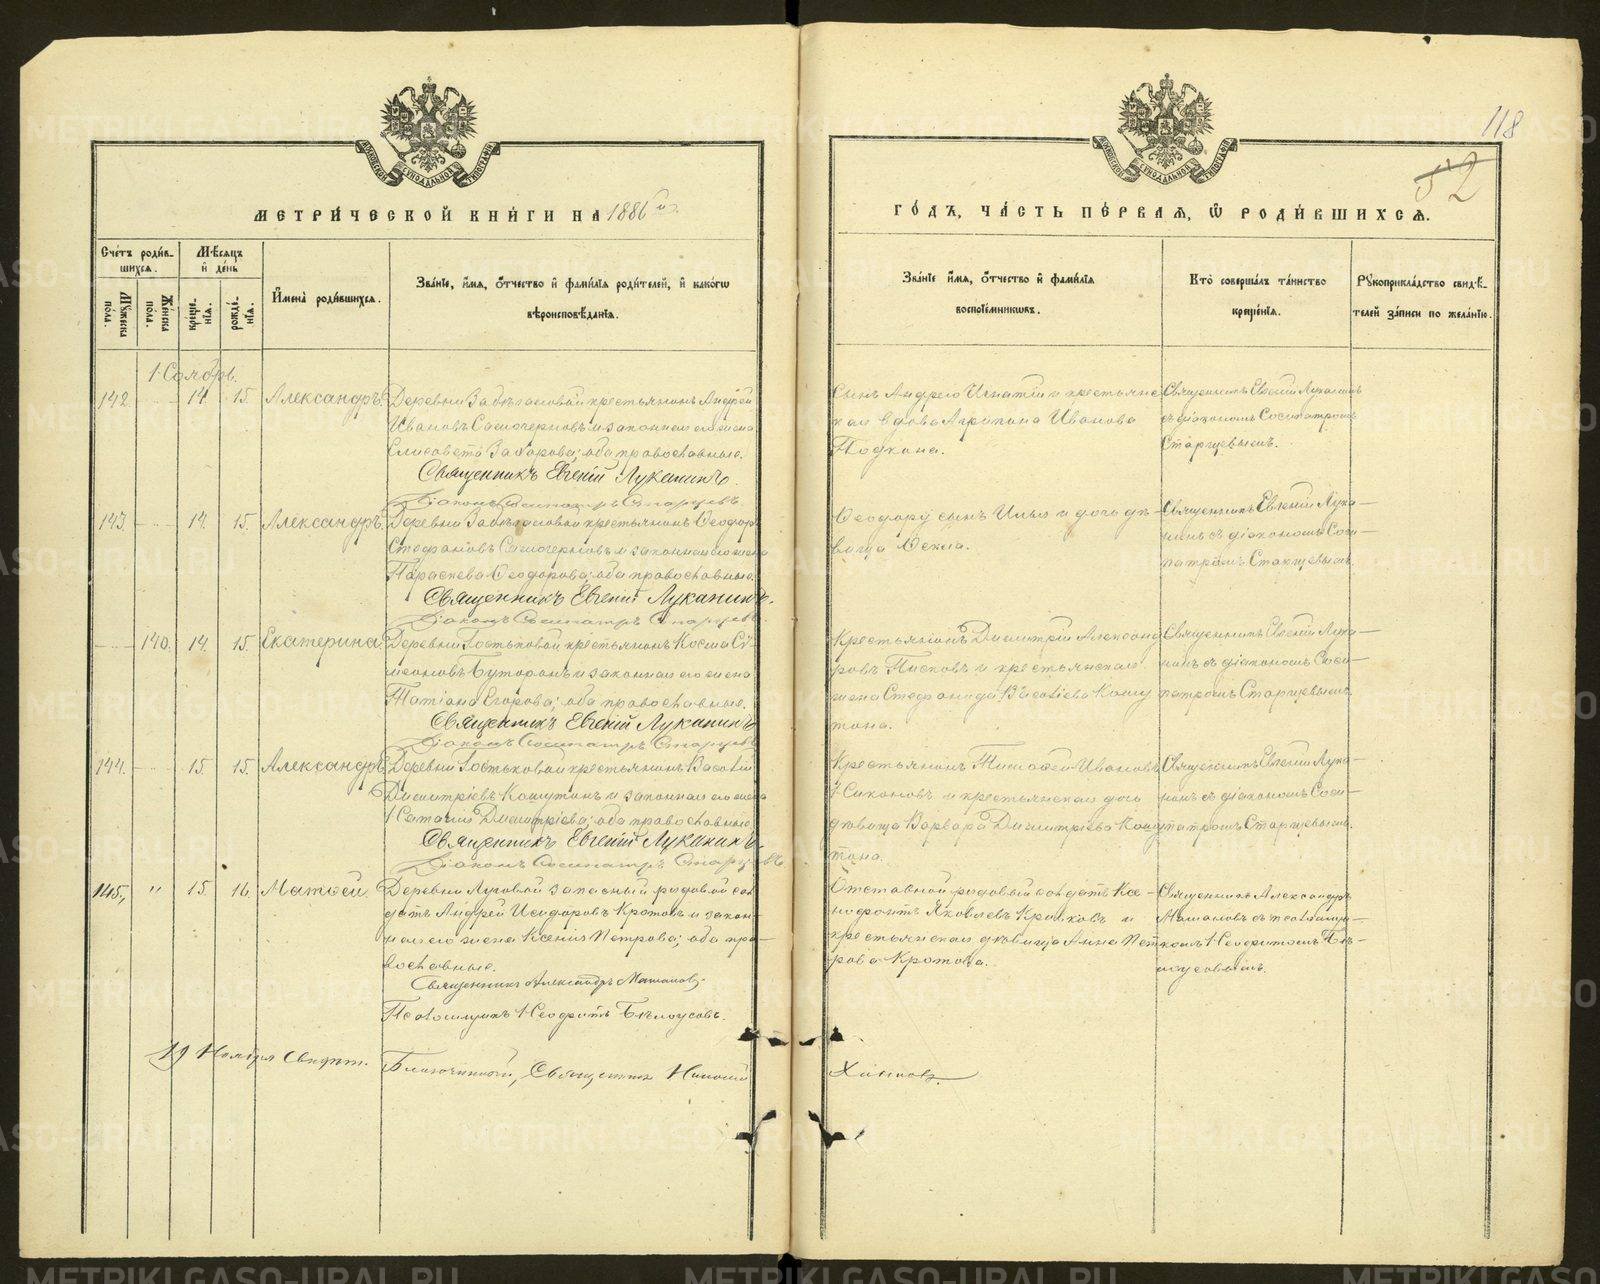 118
52
МЕТРИ́ЧЕСКОЙ КНИ́ГИ НА 1886 й
ГО́ДЪ, ЧА́СТЬ ПЕ́РВАЯ, Ѽ РОДИ́ВШИХСЯ.
Сче́тъ роди́в-
шихся.
Мꙋжеска по́ла.
Женска по́ла.
Мѣ́сяцъ
и҆ де́нь
креще́-
нїя.
рожде́-
нїя.
И҆мена̀ роди́вшихся.
Зва́нїе, и҆́мя, ѻ҆́тчество и҆ фами́лїя роди́телей, и҆ како́гѡ
вѣроисповѣ́данїя.
Зва́нїе и҆́мя, ѻ҆́тчество и҆ фами́лїя
воспрїе́мникѡвъ.
Кто̀ соверша́лъ та́инство
креще́нїя.
Рꙋкоприкла́дство свидѣ́-
телей за́писи по жела́нїю.
142. 14. 15. Александръ.
Иванов Самочерновъ и законная его жена
Елисавета Захарова; оба православные.
Священникъ Евгеній Луканинъ.
Діаконъ Сосипатръ Старцевъ.
Сынъ Андрею Игнатій и крестьянс
кая вдова Агрипина Иванова
Священникъ Евгеній Луканинъ
съ діакономъ Сосипатромъ
Старцевымъ.
143 14. 15. Александръ.
Стефановъ Самочерновъ и законная его жена
Параскева Ѳеодорова; оба православные.
Священникъ Евгеній Луканинъ.
Діаконъ Сосипатръ Старцевъ.
Ѳеодору сынъ Илья и дочь дѣ-
вица Ѳекла.
Священникъ Евгеній Лука-
нинъ съ діакономъ Соси-
патромъ Старцевымъ.
140. 14. 15. Екатерина.
крестьянинъ Косма Си-
меоновъ Буторинъ и законная его жена
Татіана Егорова; оба православные.
Священникъ Евгеній Луканинъ
Діаконъ Сосипатръ Старцевъ
Крестьянинъ Димитрій Александ
ровъ Писковъ и крестьянская
жена Стефанида Васильева Кашу
тина.
Священникъ Евгеній Лука-
нинъ съ діакономъ Соси-
патромъ Старцевымъ.
144. 15. 15. Александръ.
крестьянинъ Василій
Димитріевъ Кашутинъ и законная его жена
Наталія Димитріева; оба православные.
Священникъ Евгеній Луканинъ.
Діаконъ Сосипатръ Старцевъ
Крестьянинъ Тимоѳей Ивановъ
и крестьянская дочь
дѣвица Варвара Димитріева Кашу
тина.
Священникъ Евгеній Лука-
нинъ съ діакономъ Соси-
патромъ Старцевымъ.
145. " 15. 16. Матѳей.
Деревни Луговой запасный рядовой сол
датъ Андрей Исидоровъ Кротовъ и закон-
ная его жена Ксенія Петрова; оба пра-
вославные.
Священникъ Александръ
Псаломщикъ Неофитъ Бѣлоусовъ.
Отставной рядовый солдатъ Ксе-
нофонтъ Яковлевъ и
крестьянская дѣвица Анна Пет
рова Кротова.
Священникъ Александръ
съ псаломщи-
комъ Неофитомъ Бѣ-
лоусовымъ.
19 Ноября Свидѣт.
Благочинный, Священникъ Николай